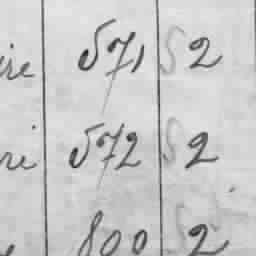 ire 571 2
ri 572 2
800 2